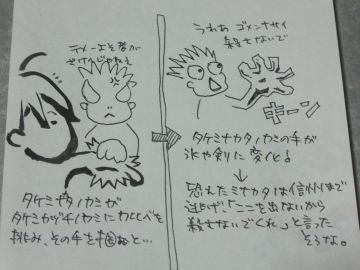 テメーよそ者が
ざけんじゃねぇ
タケミナカタノカミが
タケミカヅチノカミに力比べを
挑み、その手を掴むと…
うわぁ ゴメンナサイ
殺さないで
キーン
タケミナカタノカミの手が
氷や剣に変化!
恐れたミナカタは信州まで
逃げ、「ここを出ないから
殺さないでくれ」と言った
そうな。